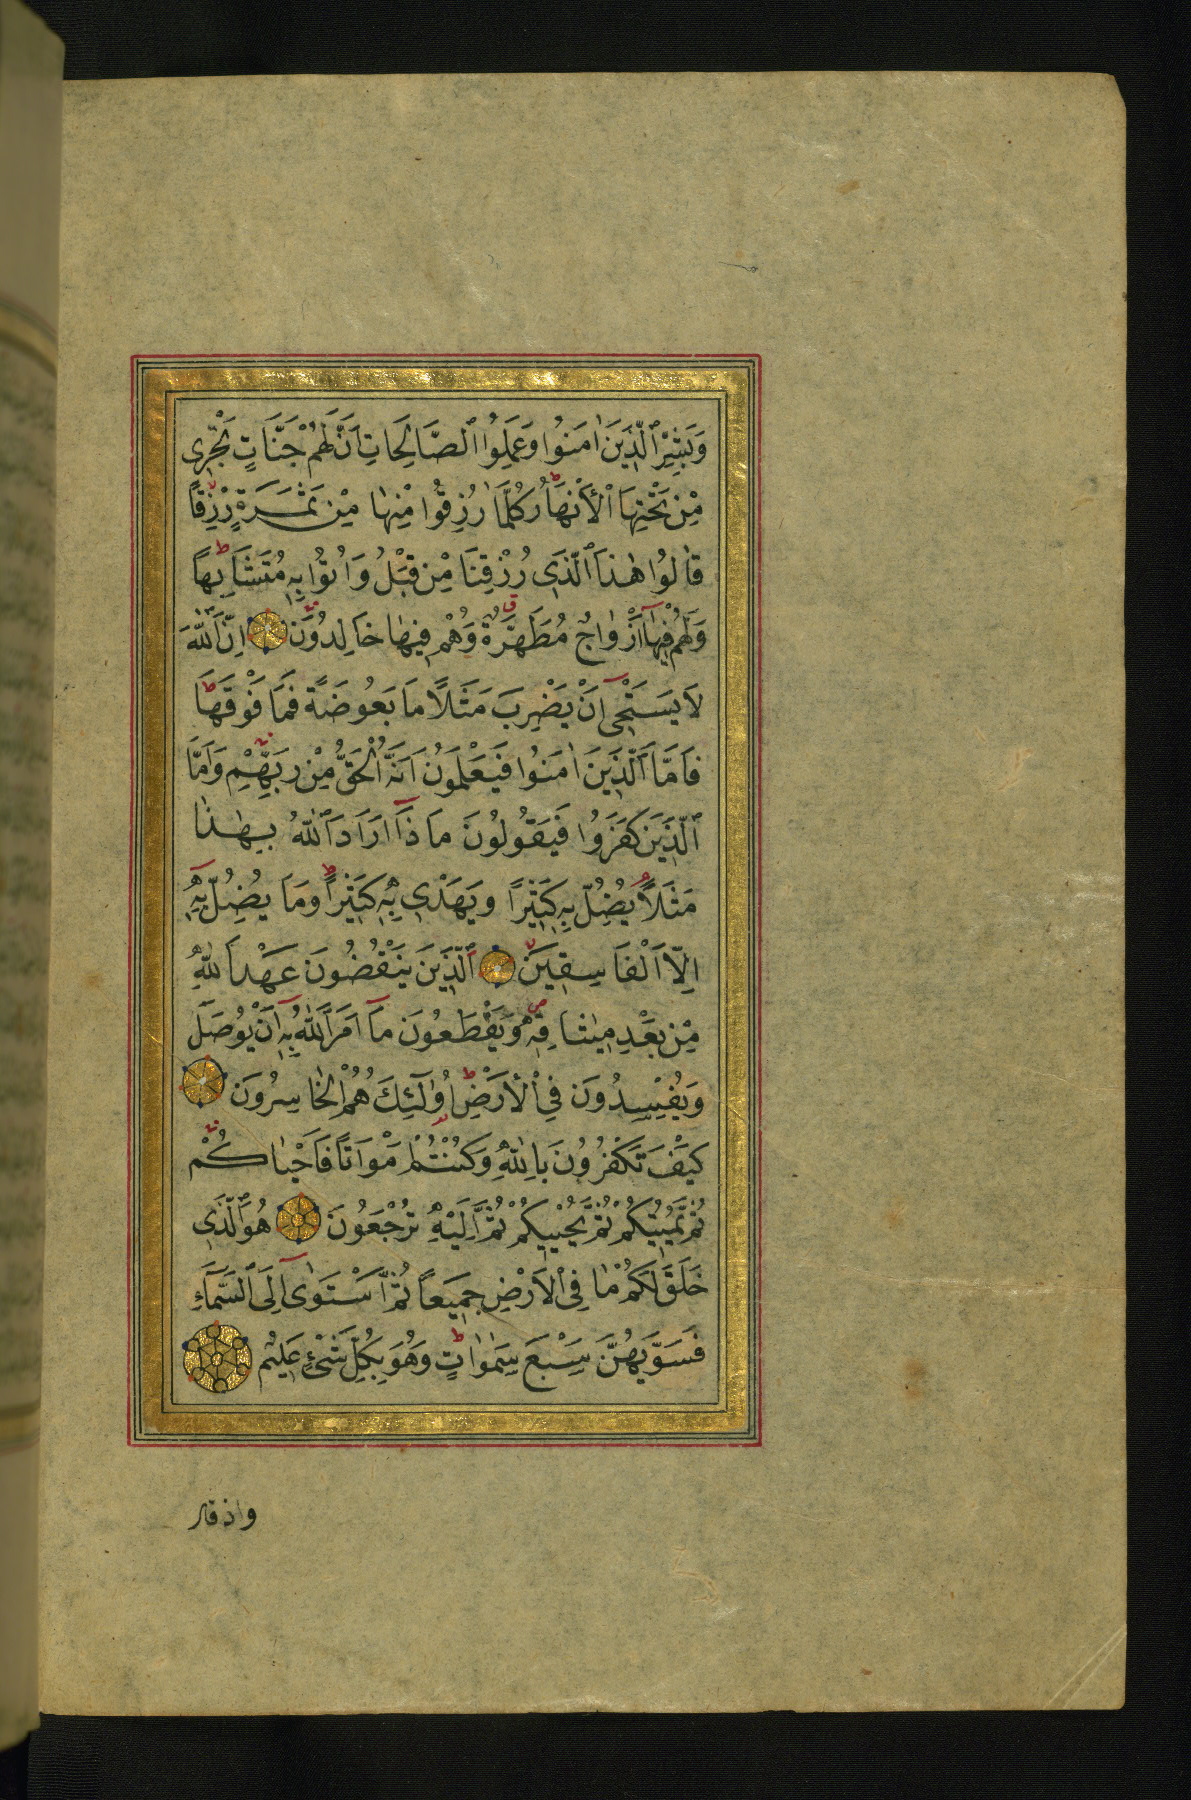 وَبَشِّرِ ٱلَّذِينَ اٰمَنُوا وَعَمِلُوا ٱلصَّالِحَاتِ اَنَّ لَهُمْ جَنَّاتٍ تَجْرِى
مِنْ تَحْتِهَا ٱلْأَنْهَارُ كُلَّمَا رُزِقُوا مِنْهَا مِنْ ثَمَرَةٍ رِزْقًا
قَالُوا هٰذَا ٱلَّذِى رُزِقْنَا مِنْ قَبْلُ وَاُتُوا بِهِ مُتَشَابِهًا
وَلَهُمْ فِيهَا اَزْوَاجٌ مُطَهَّرَةٌ وَهُمْ فِيهَا خَالِدُونَ اِنَّ ٱللّٰهَ
لَا يَسْتَحْىِ اَنْ يَضْرِبَ مَثَلًا مَا بَعُوضَةً فَمَا فَوْقَهَا
فَاَمَّا ٱلَّذِينَ اٰمَنُوا فَيَعْلَمُونَ اَنَّهُ ٱلْحَقُّ مِنْ رَبِّهِمْ وَاَمَّا
ٱلَّذِينَ كَفَرُوا فَيَقُولُونَ مَا ذَا اَرَادَ ٱللّٰهُ بِهٰذَا
مَثَلًا يُضِلُّ بِهِ كَثِيرًا وَيَهْدِى بِهِ كَثِيرًا وَمَا يُضِلُّ بِهِ
اِلَّا ٱلْفَاسِقِينَ ٱلَّذِينَ يَنْقُضُونَ عَهْدَ ٱللّٰهِ
مِنْ بَعْدِ مِيثَاقِهِ وَيَقْطَعُونَ مَا اَمَرَ ٱللّٰهُ بِهِ اَنْ يُوصَلَ
وَيُفْسِدُونَ فِى ٱلْأَرْضِ اُولٰئِكَ هُمُ ٱلْخَاسِرُونَ
كَيْفَ تَكْفُرُونَ بِاللّٰهِ وَكُنْتُمْ اَمْوَاتًا فَاَحْيَاكُمْ
ثُمَّ يُمِيتُكُمْ ثُمَّ يُحْيِيكُمْ ثُمَّ اِلَيْهِ تُرْجَعُونَ هُوَ ٱلَّذِى
خَلَقَ لَكُمْ مَا فِى ٱلْاَرْضِ جَمِيعًا ثُمَّ ٱسْتَوٰى اِلَى ٱلسَّمَاءِ
فَسَوّٰيهُنَّ سَبْعَ سَمٰوَاتٍ وَهُوَ بِكُلِّ شَىْءٍ عَلِيمٌ
واذ قال